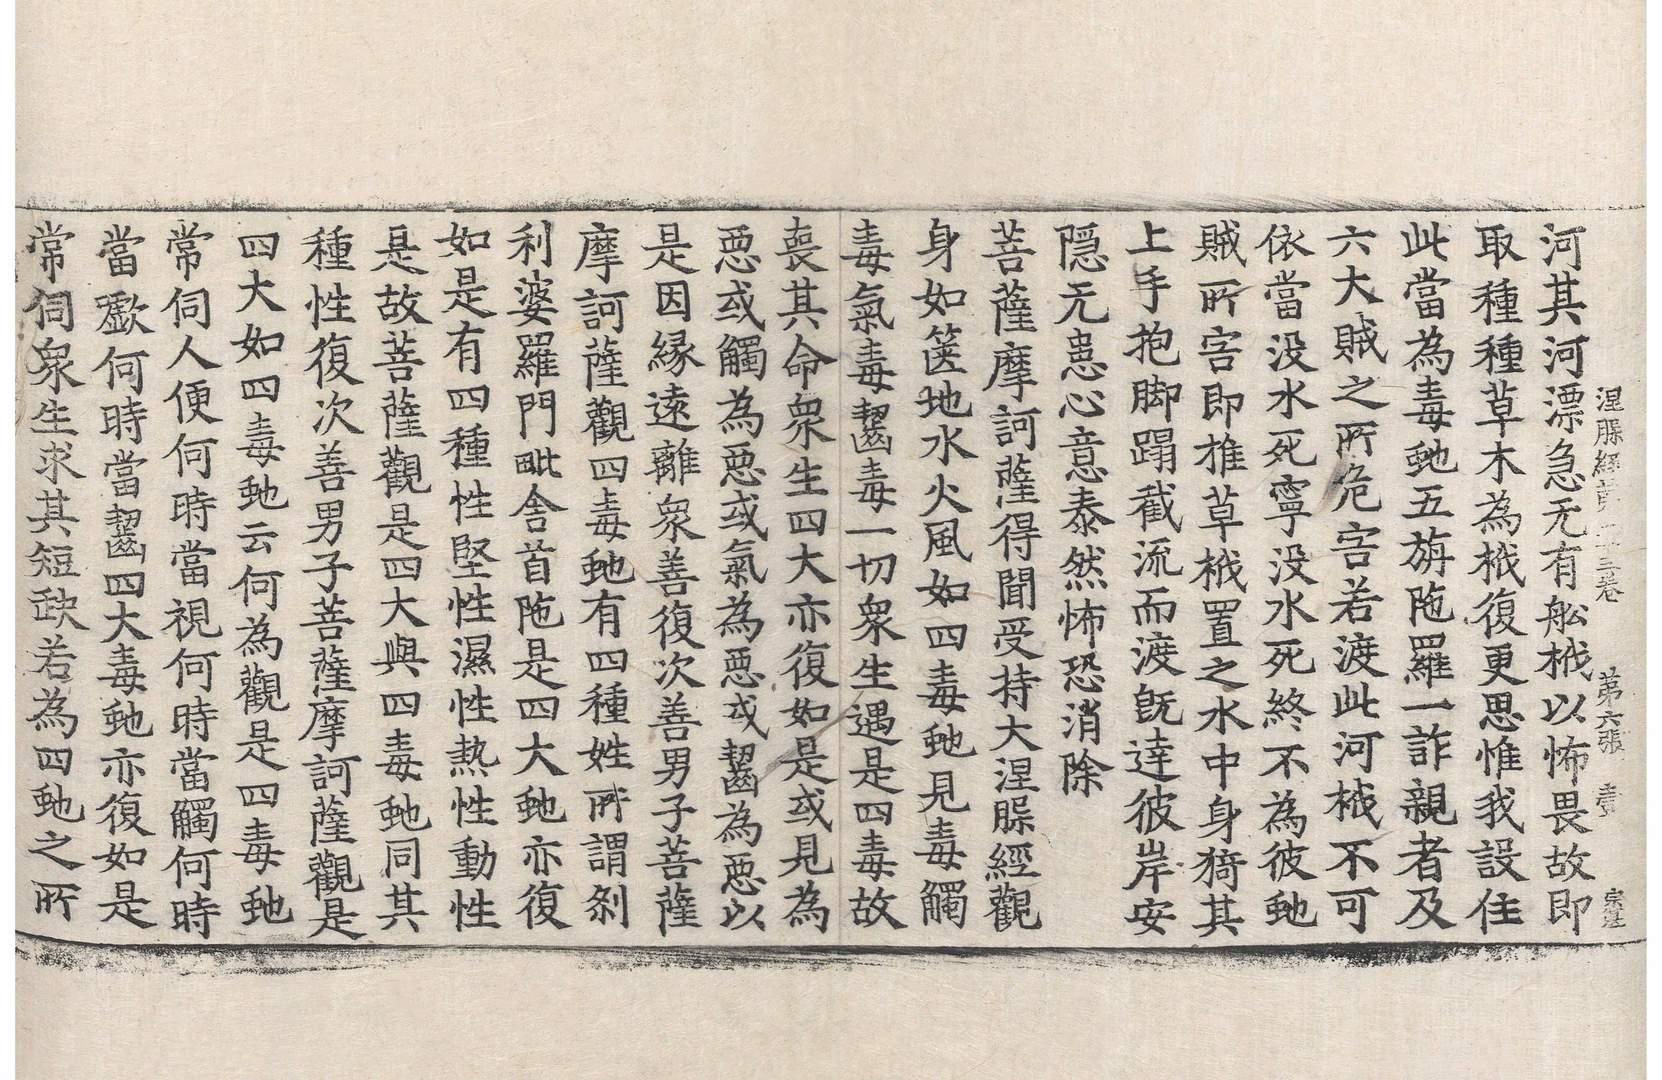 涅槃經第二十三卷 第六張 壹 宗
河其河漂急无有舩栰以怖畏故即
取種種草木為栰復更思惟我設住
此當為毒虵五旃陁羅一詐親者及
六大賊之所危害若渡此河栰不可
依當没水死寧没水死終不為彼虵
賊所害即推草栰置之水中身猗其
上手抱脚蹋截流而渡旣達彼岸安
隱无患心意泰然怖恐消除
菩薩摩訶薩得聞受持大涅槃經觀
身如篋地水火風如四毒虵見毒觸
毒氣毒齧毒一切衆生遇是四毒故
喪其命衆生四大亦復如是或見為
惡或觸為惡或氣為惡或齧為惡以
是因緣遠離衆善復次善男子菩薩
摩訶薩觀四毒虵有四種姓所謂刹
利婆羅門毗舍首陁是四大虵亦復
如是有四種性堅性濕性熱性動性
是故菩薩觀是四大與四毒虵同其
種性復次善男子菩薩摩訶薩觀是
四大如四毒虵云何為觀是四毒虵
常伺人便何時當視何時當觸何時
當歠何時當齧四大毒虵亦復如是
常伺衆生求其短缺若為四虵之所